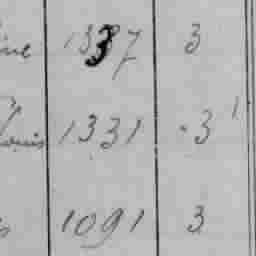 ine 1337 3
Louis 1331 3
1091 3